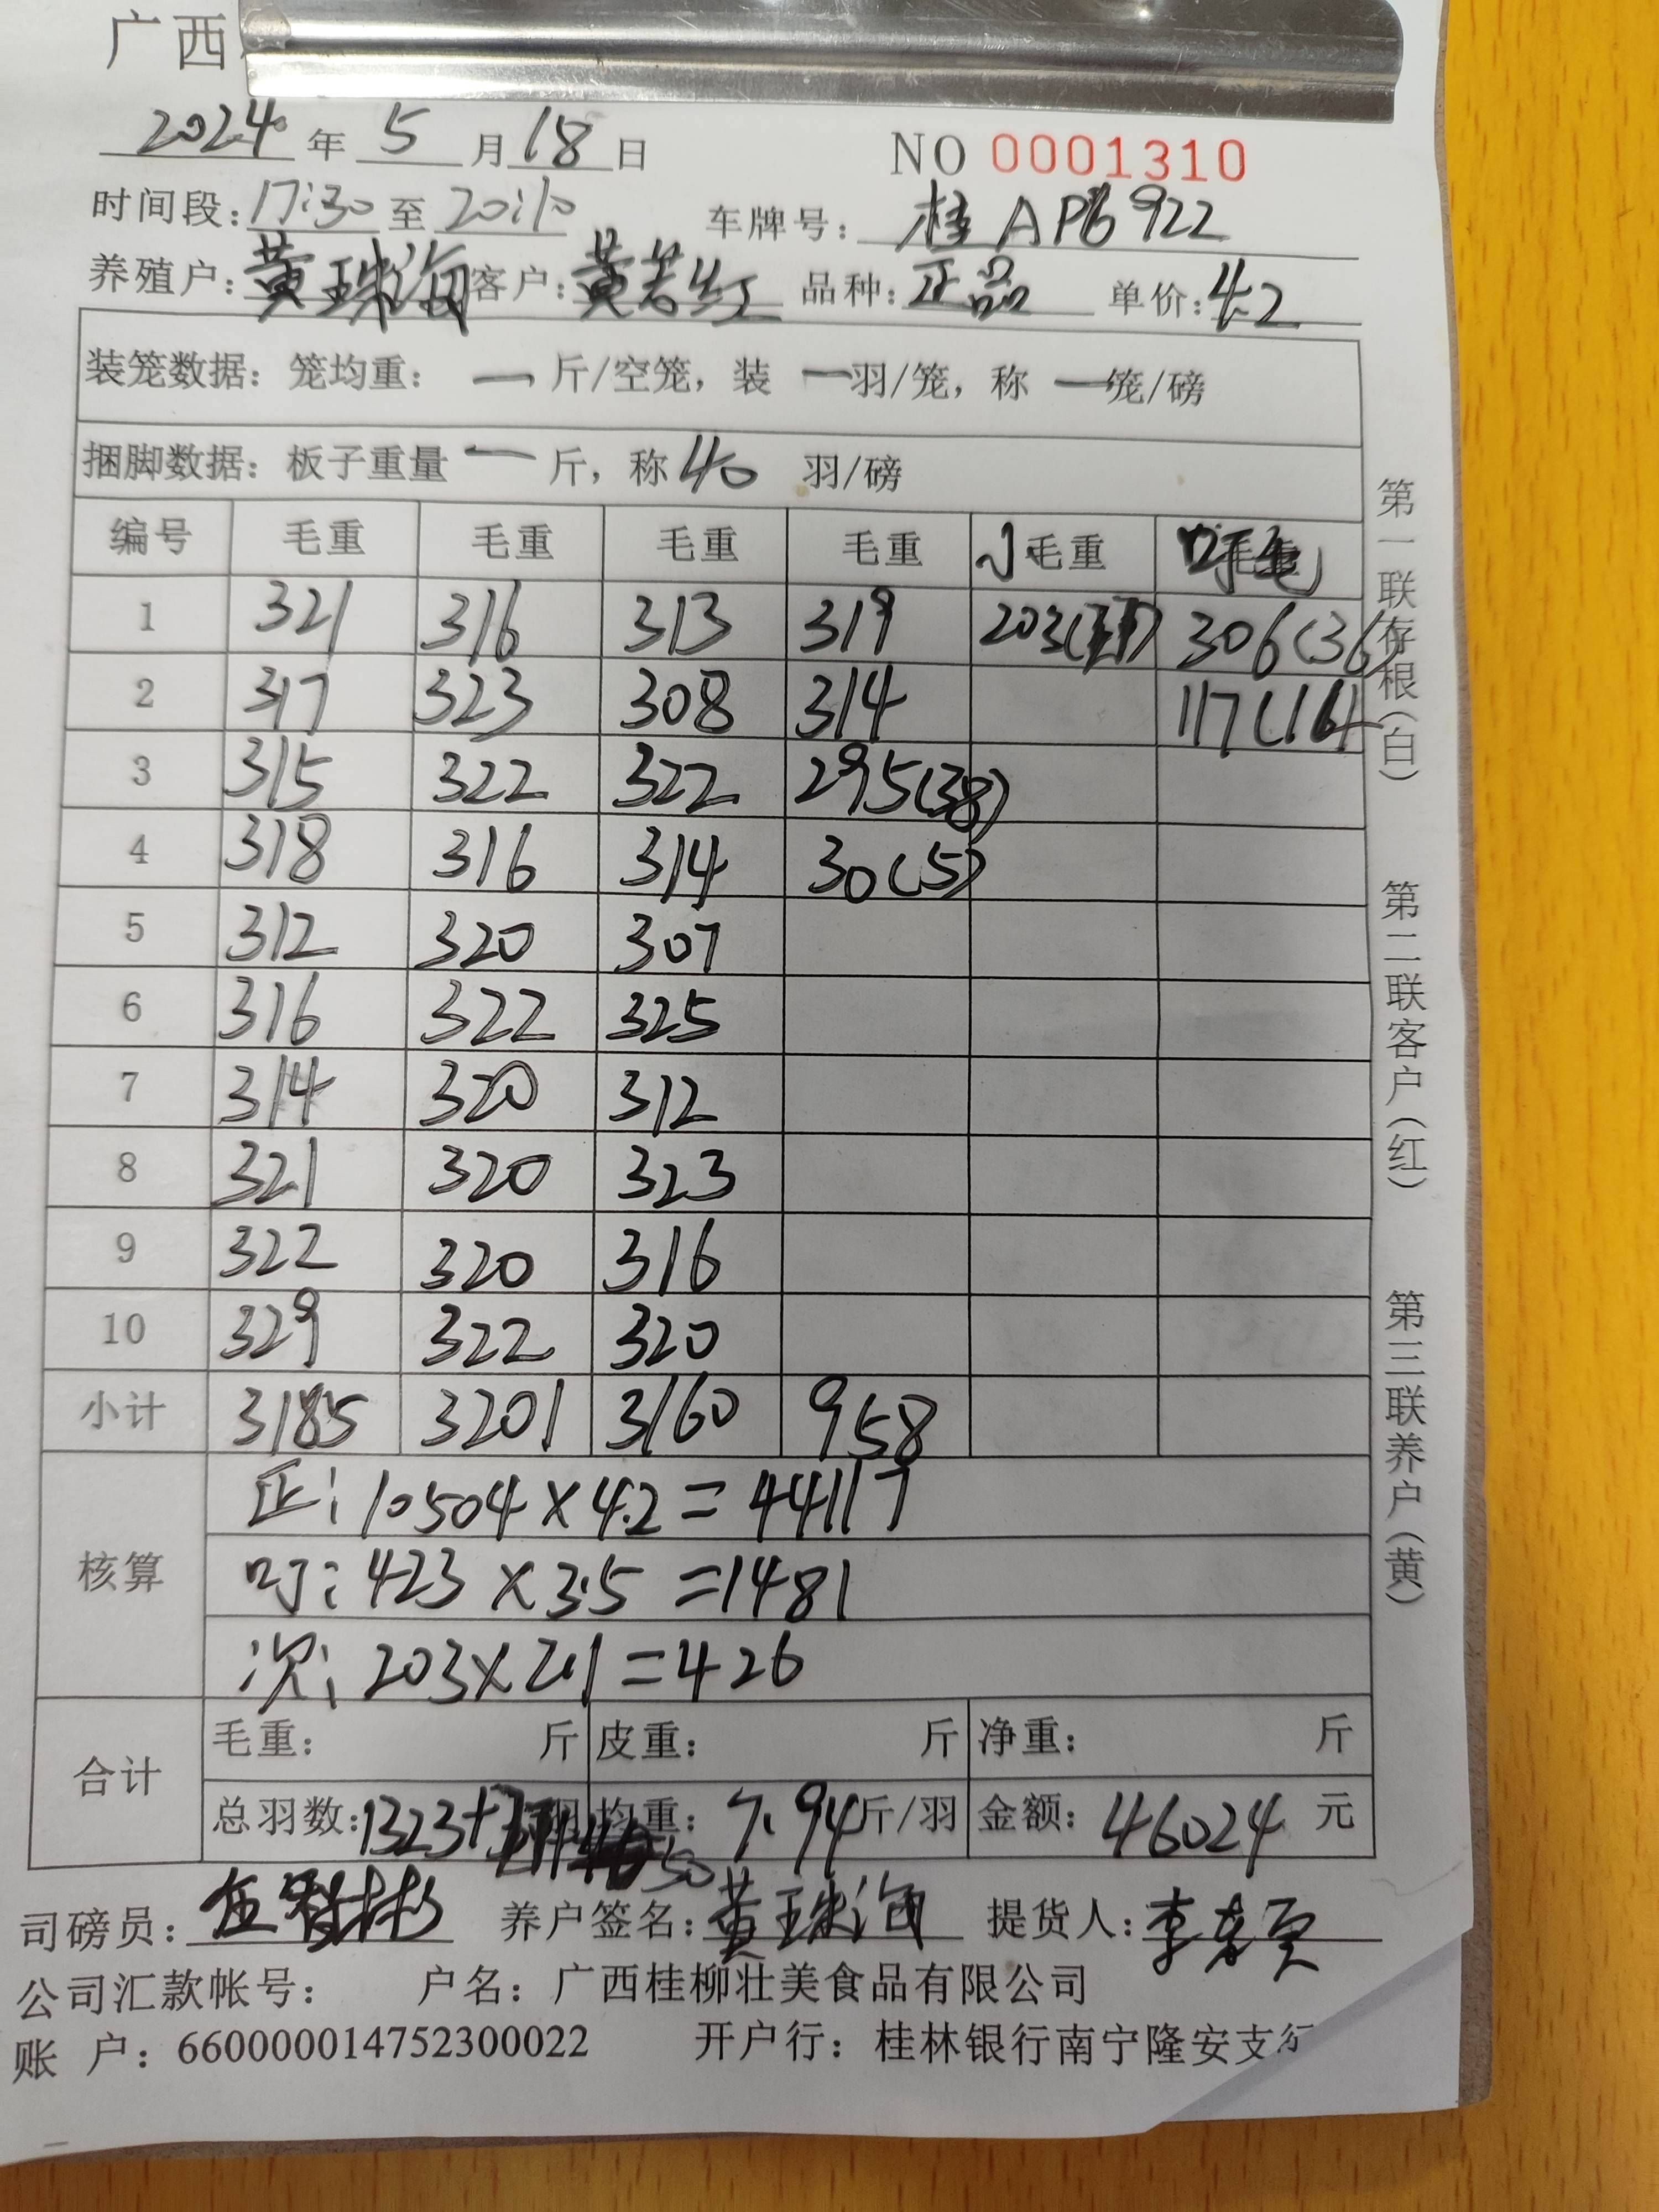 广西
2024年5月18日 NO 0001310
时间段:17:30至20:10 车牌号:桂AP6922
养殖户:黄珠海 客户:黄若红 品种:正品 单价:4.2
装笼数据:笼均重: 一 斤/空笼,装 一 羽/笼,称 一 笼/磅
捆脚数据:板子重量 一 斤,称 40 羽/磅
编号 毛重 毛重 毛重 毛重 小毛重 毛重
1 321 316 313 319 203 306(36)
2 317 323 308 314 117(16)
3 315 322 322 295(38)
4 318 316 314 30(5)
5 312 320 307
6 316 322 325
7 314 320 312
8 321 320 323
9 322 320 316
10 329 322 320
小计 3185 3201 3160 958
核算
正:10504×4.2=44117
叮:423×3.5=1481
次:203×2.1=426
合计
毛重: 斤 皮重: 斤 净重: 斤
总羽数:1323+ 羽 均重:7.94斤/羽 金额:46024元
50
司磅员: 养户签名:黄珠海 提货人:李
公司汇款帐号: 户名:广西桂柳壮美食品有限公司
账 户:660000014752300022 开户行:桂林银行南宁隆安支行
第一联存根(白)
第二联客户(红)
第三联养户(黄)